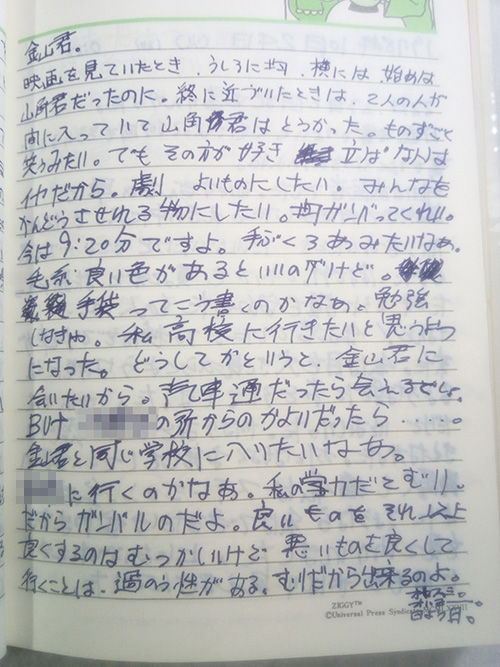 金山君。
映画を見ていたとき、うしろに均、横には、始めは
山角君だったのに。終に近づいたときは、2人の人が
間に入っていて山角君はとうかった。ものすごく
笑うみたい。でも その方が好き 立ば なんは
イヤだから。劇 よいものにしたい。みんなを
かんどうさせれる物にしたい。均ガンバってくれい。
今は9:20分ですよ。手ぶくろあみたいなぁ。
毛糸 良い色があるといいのダけど。
手袋 ってこう書くのかなぁ。勉強
しなきゃ。私 高校に行きたいと思うよう
になった。どうしてかというと、金山君に
会いたいから。声 通だったら会えるでしょ。
の所からのかよいだったら ・・・・。
金君と同じ学校に入りたいなーあっ。
に行くのかなぁ。私の学力だとむリ。
だからガンバルのだよ。良い ものを それ以上
良くするのはむつかしいけど 悪いものを良くして
行くことは、過のう性がある。むりだから出来るのよ。
日よう日。
ZIGGY™
©Universal Press Syndicate